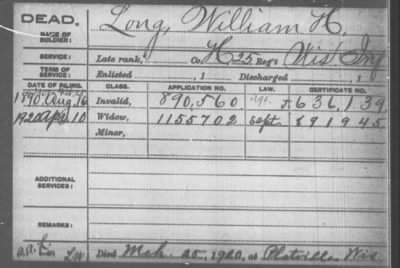 DEAD.
NAME OF SOLDIER: Long, William H.
SERVICE: Late rank, Co. H 25 Reg't Wis Inf
TERM OF SERVICE: Enlisted , 1 Discharged , 1
DATE OF FILING. CLASS. APPLICATION NO. LAW. CERTIFICATE NO.
1890 Aug. 16 Invalid, 890,560 636,139
1920 Apl 10 Widow, 1155702 Sept 891945
Minor,
ADDITIONAL SERVICES:
REMARKS:
Died Mch. 25, 1920, at Platville Wis